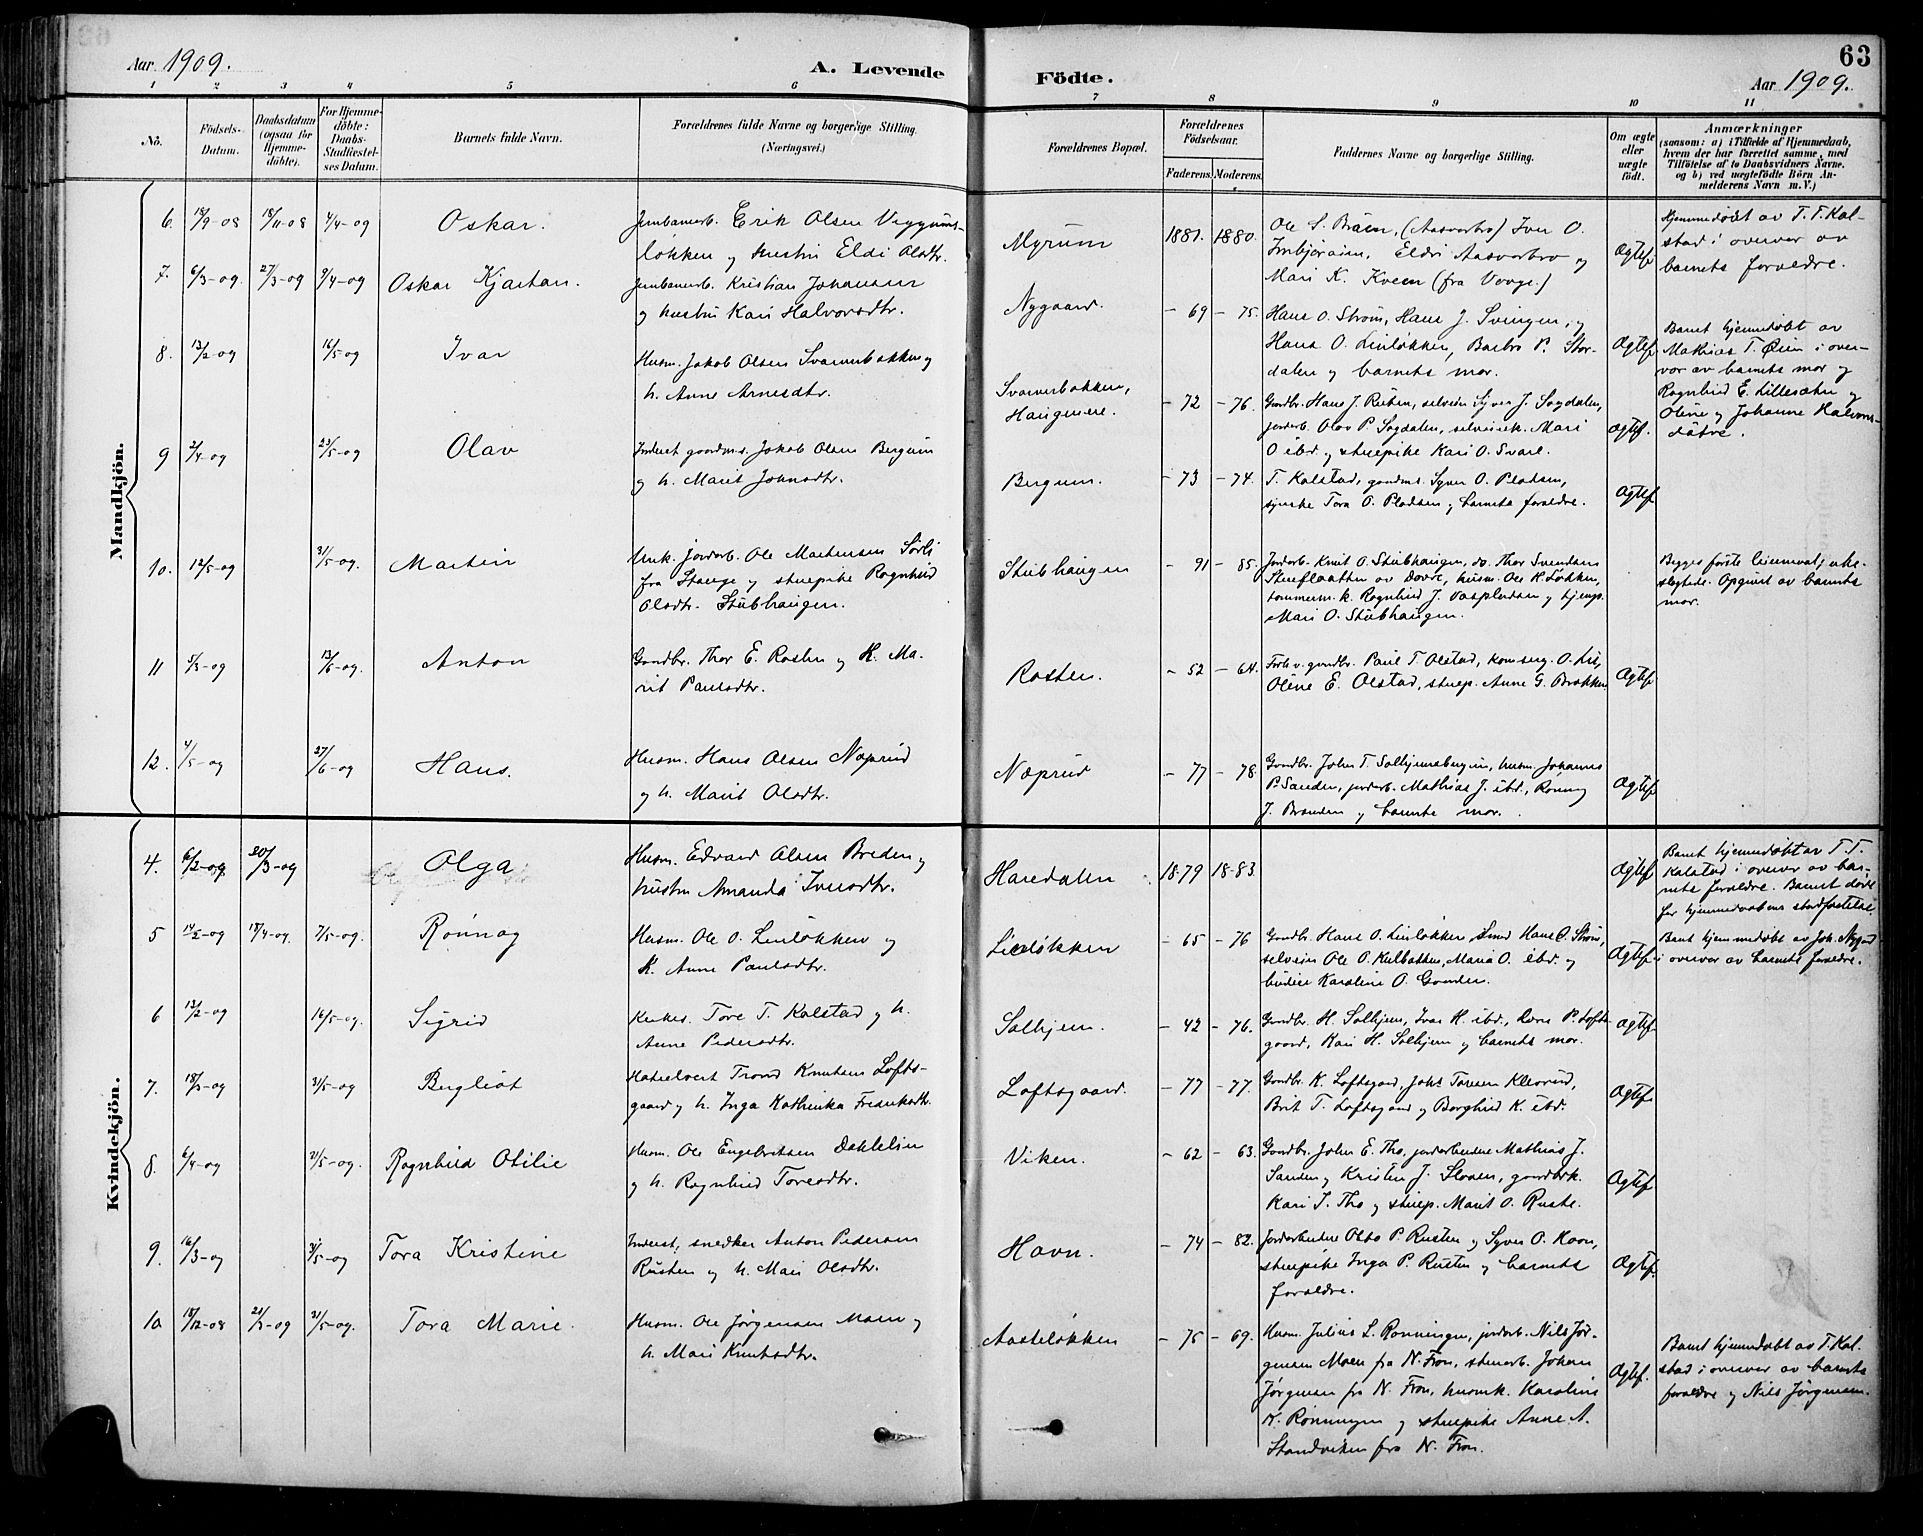 63
Aar 1909.
A. Levende
Födte.
Aar 1909.
1 2 3 4 5 6 7 8 9 10 11
No.
Födsels-
Datum.
Daabsdatum
(ogsaa för
Hjemme-
döbte).
For Hjemme-
döbte:
Daabs-
Stadfæstel-
ses Datum.
Barnets fulde Navn.
Forældrenes fulde Navne og borgerlige Stilling.
(Næringsvei.)
Forældrenes Bopæl.
Forældrenes
Födselsaar.
Faderens. Moderens.
Faddernes Navne og borgerlige Stilling.
Om ægte
eller
uægte
födt.
Anmærkninger
(saasom: a) i Tilfælde af Hjemmedaab,
hvem der har forrettet samme, med
Tilföielse af to Daabsvidners Navne.
og b) ved uægtefödte Börn An-
melderens Navn m. V.)
Mandkjön.
6. 18/9-08 18/11-08 4/4-09 Oskar.
Jernbanearb. Erik Olsen Veggums-
løkken og hustru Eldi Olsdtr.
Myrum 1881. 1880.
Ole S. Bråen, (Aasvorbro) Iver O.
Eldri Aasvorbro og
Mari K. Kveen (fra Vaage.)
Ægtef
Hjemmedøbt av T. T. Kal-
stad i overvær av
barnets forældre.
7. 6/3-09. 27/3-09 9/4-09 Oskar Kjartan.
Jernbanearb. Kristian Johansen
og hustru Kari Halvorsdtr.
Nygaard. - 69 - 75.
Hans O. Strøm, Hans J. Svingen, og
Hans O. Linløkken, Barbro P. Stor-
dalen og barnets mor.
Ægtef
Barnet hjemmedøbt av
Mathias T. Øien i over-
vær av barnets mor og
Ragnhild E. Lillesæter og
Oline og Johanne Halvors-
døtre.
8. 13/2-09 16/5-09 Ivar
Husm. Jakob Olsen Svarverbakken og
h. Anne Arnesdtr.
Svarverbakken,
Haugene. - 72 - 76.
Gaardbr. Hans J. Rusten, selveier Syver J. Sagdalen,
jordarb. Olav P. Sagdalen, selveierk. Mari
O ibd. og stuepike Kari O. Svare.
Ægtef.
9 2/4-09 23/5-09 Olav
Inderst gaardm.s. Jakob Olsen Bergum
og h. Marit Johnsdtr.
Bergum. - 73 - 74.
T. Kalstad, gaardm.s. Syver O. Pladsen,
Tora O. Pladsen og barnets forældre.
Ægtef
10. 12/5-09 31/5-09. Martin
Unk. jordarb. Ole Martinsen Sørli
fra Stange og stuepike Ragnhild
Olsdtr. Stubhaugen.
Stubhaugen - 91 - 85.
Jordarb. Knut O. Stubhaugen, do. Thor Svendsen
av Dovre, husm. Ole K. Løkken,
tømmerm. k. Ragnhild J.
Mari O. Stubhaugen.
Begges første leiermaal, ube-
slegtede. Opgivet av barnets
mor.
11 5/3-09 13/6-09. Anton
Gaardbr. Thor E. Rosten og K. Ma-
rit Paulsdtr.
Rosten. - 52 - 64.
Forh. v. gaardbr. Paul T. Olstad, O. Lie,
Oline E. Olstad, stuep. Anne G. Brækken
Ægtef
12. 4/5-09 27/6-09 Hans.
Husm. Hans Olsen Næprud
og h. Marit Olsdtr.
Næprud - 77 - 78.
Gaardbr. John T. Solhjemsbergen, husm. Johannes
P. Sanden, jordarb. Mathias J. ibd., Rønnog
J. Branden og barnets mor.
Ægtef
Kvindekjön.
4. 6/2-09 20/3-09 Olga
Husm. Edvard Olsen Breden og
hustru Amanda Iversdtr.
Haredalen 1879 1883
Ægtef
Barnet hjemmedøbt av T. T.
Kalstad i overvær av bar-
nets forældre. Barnet døde
før hjemmedaabens stadfæstelse.
5 14/2-09 18/4-09. 7/5-09. Rønnog
Husm. Ole O. Linløkken og
K. Anne Paulsdtr.
Linløkken - 65 - 76
Gaardbr. Hans O. Linløkken, smed Hans O. Strøm,
selveier Ole O. Kulbakken, Maria O. ibd. og
budeie Karoline O. Granden.
Ægtef.
Barnet hjemmedøbt av Joh. Nygard
i overvær av barnets forældre.
6 13/2-09 16/5-09. Sigrid
Kirkes. Tore T. Kalstad og h.
Anne Pedersdtr.
Solhjem. - 42 - 76.
Gaardbr. H. Solhjem, Ivar H. ibd., Lars P. Lofts-
gaard, Kari H. Solhjem og barnets mor.
Ægtef.
7. 18/3-09 31/5-09 Bergliot
Hotelvert Trond Knutsen Lofts-
gaard og h. Inga Kathinka Fredriksdtr.
Loftsgaard. - 77 - 77.
Gaardbr. K. Loftsgard, Johs Toresen Kleivrud,
Brit T. Loftsgaard og Borghild K. ibd.
Ægtef.
8. 6/4-09 21/5-09. Ragnhild Otilie
Husm. Ole Engebretsen Dahlelien
og h. Ragnhild Toresdtr.
Viken. - 62 - 63.
Gaardbr. John E. Tho, jordarbeidere Mathias J.
Sanden og Kristen J. Sloven, gaardbrk.
Kari J. Tho og stuep. Marit O. Ruste.
Ægtef
9. 16/3-09 31/5-09 Tora Kristine
Inderst, snedker Anton Pedersen
Rusten og h. Mari Olsdtr.
Havn. - 74 - 82.
Jordarbeidere Otto P. Rusten og Syver O. Havn,
stuepike Inga P. Rusten og barnets
forældre.
Ægtef.
10 18/12-08 21/3-09 31/5-09. Tora Marie.
Husm. Ole Jørgensen Moen og
h. Mari Knutsdtr.
Aasteløkken - 75 - 69.
Husm. Julius L. Rønningen, jordarb. Nils Jør-
gensen Moen fra N. Fron, stenarb. Johan
Jørgensen fra N. Fron, husmk. Karoline
N. Rønningen og stuepike Anne A.
Strandviken fra N. Fron.
Ægtef.
Barnet hjemmedøbt av T. Kal-
stad i overvær av barnets
forældre og Nils Jørgensen.